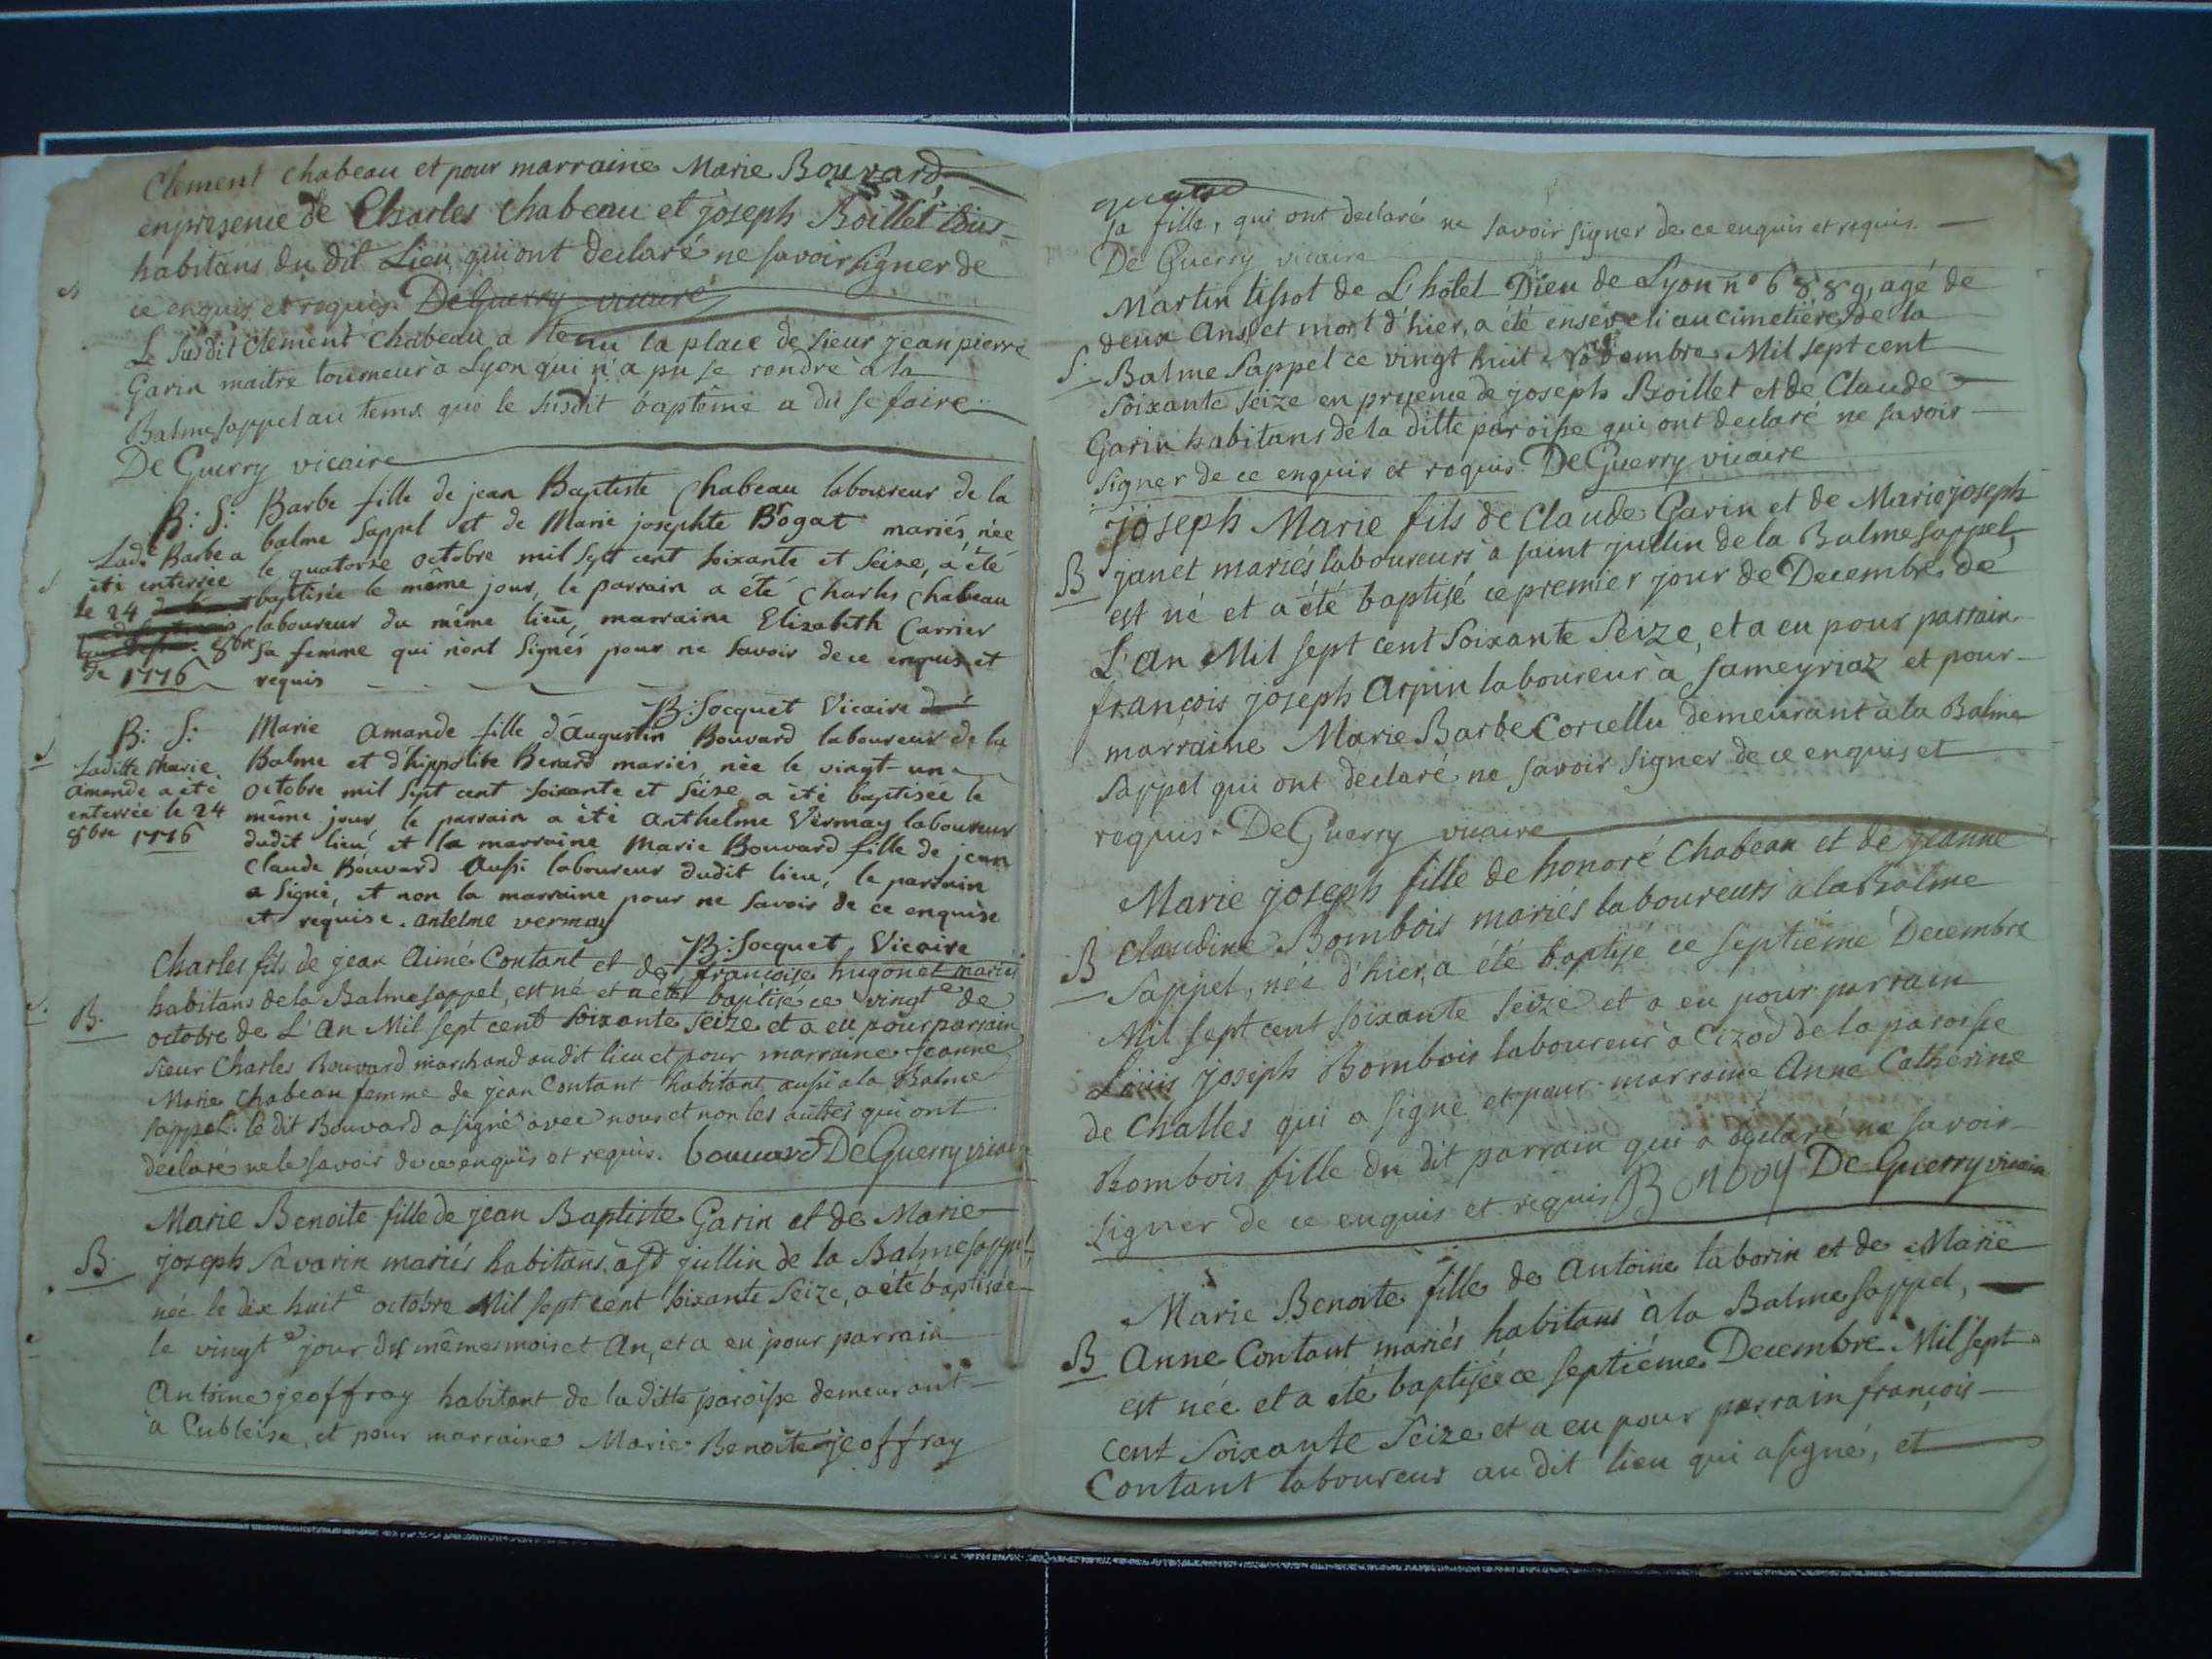 Clement chabeau et pour marraine Marie Bouvard
en presence de Charles chabeau et joseph Boillet tous
habitans du dit Lieu qui ont declaré ne savoir signer de
ce enquis et requis. De Guerry vicaire
Le susdit Clement Chabeau a tenu la place de sieur jean pierre
Garin maitre tourneur à Lyon qui n'a pu se rendre à la
Balme sappel au tems que le susdit baptême a du se faire
De Guerry vicaire
B: S: Barbe fille de jean Baptiste Chabeau laboureur de la
balme sappel et de Marie josephte Bogat mariés, née
le quatorze octobre mil sept cent soixante et seize, a été
baptisée le même jour, le parrain a été Charles Chabeau
laboureur du même lieu, marraine Elizabeth Carrier
sa femme qui n'ont signés pour ne savoir de ce enquis et
requis
Lade Barbe a
été enterrée
le 24
8bre
de 1776
B: Socquet Vicaire
B: S: Marie Amande fille d'Augustin Bouvard laboureur de la
Balme et d'hippolite Berard mariés, née le vingt-un
octobre mil sept cent soixante et seize a été baptisée le
même jour le parrain a été Anthelme Vermay laboureur
dudit lieu et la marraine Marie Bouvard fille de jean
Claude Bouvard Aussi laboureur dudit lieu, le parrain
a signé, et non la marraine pour ne savoir de ce enquise
et requise. antelme vermay
Laditte Marie
Amande a été
enterrée le 24
8bre 1776
B: Socquet, Vicaire
Charles fils de jean Aimé Contant et de françoise hugonet mariés
B. habitans de la Balme sappel, est né et a été baptisé ce vingte de
octobre de L'An Mil sept cent soixante seize et a eu pour parrain
sieur Charles Bouvard marchand audit lieu et pour marraine jeanne
Marie Chabeau femme de jean Contant habitant aussi a la Balme
sappel. le dit Bouvard a signé avec nous et non les autres qui ont
declaré ne le savoir de ce enquis et requis. bouvard De Guerry vicaire
Marie Benoite fille de jean Baptiste Garin et de Marie
B joseph Savarin mariés habitans à St jullin de la Balme sappel
née le dix huite octobre Mil sept cent soixante Seize, a été baptisée
le vingte jour du même mois et An, et a eu pour parrain
Antoine jeoffray habitant de la ditte paroisse demeurant
à Cubleise, et pour marraine Marie Benoite jeoffray
sa fille, qui ont declaré ne savoir signer de ce enquis et requis.
De Guerry vicaire
Martin tissot de L'hotel Dieu de Lyon n° 6889, agé de
deux Ans et mort d'hier, a été enseveli au cimetière de la
S. Balme Sappel ce vingt huit novembre Mil sept cent
soixante seize en presence de joseph Boillet et de Claude
Garin habitans de la ditte paroisse qui ont declaré ne savoir
signer de ce enquis et requis. De Guerry vicaire
joseph Marie fils de Claude Garin et de Marie joseph
B janet mariés laboureurs à saint jullin de la Balme sappel,
est né et a été baptisé ce premier jour de Decembre de
L'an Mil sept cent Soixante Seize, et a eu pour parrain
françois joseph Arpin laboureur à sameyriaz et pour
marraine Marie Barbe Corcellu demeurant à la Balme
sappel qui ont declaré ne savoir signer de ce enquis et
requis. De Guerry vicaire
Marie joseph fille de honoré Chabeau et de jeanne
B Claudine Bombois mariés laboureurs a la Balme
Sappel, née d'hier, a été baptisé ce septieme Decembre
Mil sept cent soixante seize et a eu pour parrain
Louis joseph Bombois laboureur à Cizod de la paroisse
de Challes qui a signé et pour marraine Anne Catherine
Bombois fille du dit parrain qui a declaré ne savoir
signer de ce enquis et requis De Guerry vicaire
Marie Benoite fille de Antoine taborin et de Marie
B Anne Contant mariés habitans à la Balme sappel,
est née et a été baptisée ce septiéme Decembre Mil sept
cent Soixante Seize et a eu pour parrain françois
Contant laboureur au dit lieu qui a signé, et